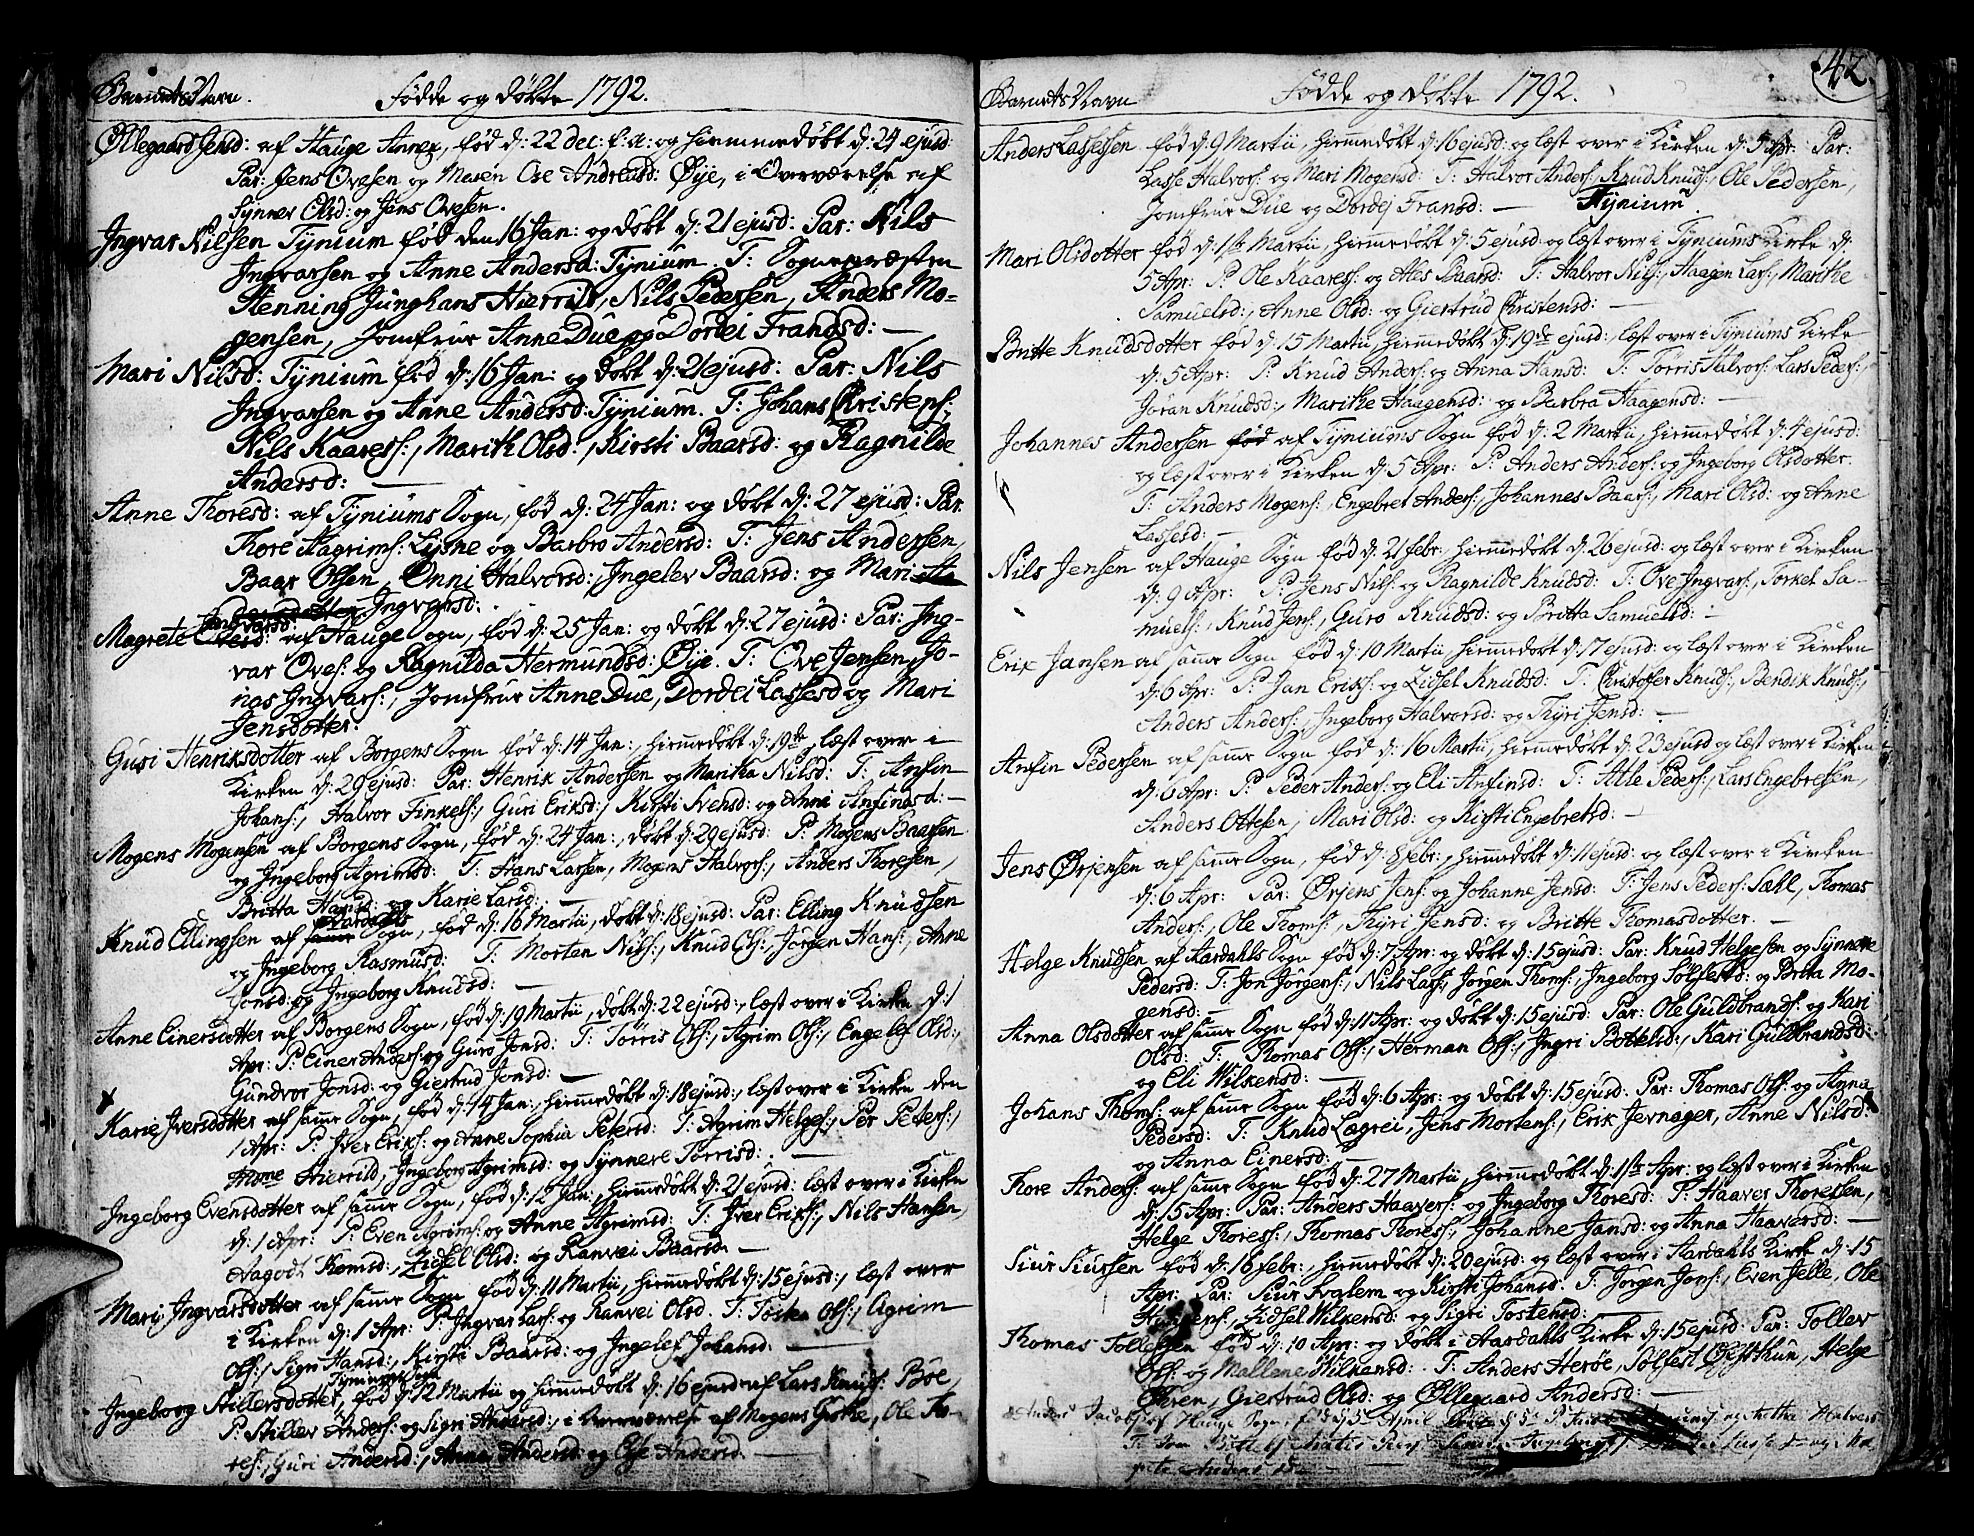 Barnets Navn. Fødde og døbte 1792.
Øllegaard Jensd: af Hauge Annex, fød d: 22 dec: f: a: og hiemmedøbt d: 24 ejusd:
Par: Jens Ovesen og Maren Ose Andreasd: Øije, i Overværelse af
Synnev Olsd: og Jens Ovesen.
Ingvar Nilsen Tynium fød den 16 Jan: og døbt d: 21 ejusd: Par: Nils
Ingvarsen og Anne Andersd: Tynium. T: Sognepræsten
Henning Junghans Hierrild, Nils Pedersen, Anders Mo-
gensen, Jomfrue Anne Due og Dordei Frandsd: —
Mari Nilsd: Tynium fød d: 16 Jan: og døbt d: 21 ejusd: Par: Nils
Ingvarsen og Anne Andersd: Tynium. T: Johans Christens:,
Nils Kaares:, Marith Olsd:, Kirsti Baarsd: og Ragnilde
Andersd: —
Anne Thoresd: af Tyniums Sogn, fød d: 24 Jan: og døbt d: 27 ejusd: Par:
Thore Aagrims: Lysne og Barbro Andersd: T: Jens Andersen,
Baar Olsen, Onni Halvorsd:, Ingelev Baarsd: og Mari
Ingvarsd:
Magrete Ingvarsd: af Hauge Sogn, fød d: 25 Jan: og døbt d: 27 ejusd: Par: Ing-
var Oves: og Ragnilda Hermundsd: Øije. T: Ove Jensen, Jo-
nas Ingvars:, Jomfrue Anne Due, Dordei Lassesd og Mari
Jensdotter.
Guri Henriksdotter af Borgens Sogn fød d: 14 Jan:, hiemmedøbt d: 19de, læst over i
Kirken d: 29 ejusd: Par: Henrik Andersen og Maritha Nilsd: T: Anfin
Johans:, Halvor Finkels:, Guri Eriksd:, Kirsti Svensd: og Anni Anfinsd: —
Mogens Mogensen af Borgens Sogn, fød d: 24 Jan:, døbt d: 29 ejusd: P: Mogens Baarsen
og Ingeborg Agrimsd: T: Hans Larsen, Mogens Halvors:, Anders Thoresen,
Britta Hansd: og Karie Larsd: —
Knud Ellingsen af Aardahls Sogn, fød d: 16 Martii, døbt d: 18 ejusd: Par: Elling Knudsen
og Ingeborg Rasmusd: T: Morten Nils:, Knud Ols:, Jørgen Hans:, Anne
Jonsd: og Ingeborg Knudsd: —
Anne Einersdotter af Borgens Sogn, fød d: 19 Martii, døbt d: 22 ejusd:, læst over i Kirken d: 1
Apr: P: Einer Anders: og Guro Jonsd: T: Torris Ols:, Agrim Ols:, Engelef Olsd:,
Gundvor Jonsd: og Giertrud Jonsd: —
Karie Iversdotter af samme Sogn, fød d: 14 Jan:, hiemmedøbt d: 18 ejusd:, læst over i Kirken den
1 Apr: P: Iver Eriks: og Anne Sophia Petersd: T: Agrim Helges:, Per Peters:,
Mone Hierrild, Ingeborg Agrimsd: og Synneve Torrisd: —
Ingeborg Evensdotter af samme Sogn, fød d: 12 Jan:, hiemmedøbt d: 21 ejusd: læst over i Kirken
d: 1 Apr: P: Even Agrims: og Anne Agrimsd: T: Iver Eriks:, Nils Hansen,
Aagodt Thomsd:, Zidsel Olsd: og Ranvei Baarsd. —
Mari Ingvarsdotter af samme Sogn fød d: 11 Martii, hiemmedøbt d: 15 ejusd:, læst over
i Kirken d: 1 Apr: P: Ingvar Lars: og Ranvei Olsd. T: Tosten Ols:, Agrim
Ols:, Signi Hansd:, Kirsti Baarsd: og Ingelef Johansd. —
Ingeborg Stillersdotter, Tyniums Sogn fød d: 12 Martii og hiemmedøbt d: 16 ejusd: af Lars Knuds: Bøe,
P: Stiller Anders: og Signi Andersd:, i Overværelse af Mogens Grothe, Ole To-
res:, Guri Andersd:, Anna Andersd: og Else Andersd. —
42.
Barnets Navn Fødde og døbte 1792.
Anders Lassesen fød d: 9 Martii, hiemmedøbt d: 16 ejusd: og læst over i Kirken d: 5 Apr: Par:
Lasse Halvors: og Mari Mogensd: T: Halvor Anders:, Knud Knuds:, Ole Pedersen,
Jomfrue Due og Dordej Fransd: — Tynium.
Mari Olsdotter fød d: 1ste Martii, hiemmedøbt d: 5 ejusd: og læst over i Tyniums Kirke d:
5 Apr: P: Ole Kaares: og Ales Baarsd: T: Halvor Nils:, Haagen Lars:, Marithe
Samuelsd:, Anne Olsd: og Giertrud Christensd: —
Britte Knudsdotter fød d: 15 Martii, hiemmedøbt d: 19de ejusd: læst over i Tyniums Kirke
d: 5 Apr: P: Knud Anders: og Anna Hansd: T: Torris Halvors:, Lars Peders:,
Jøran Knudsd:, Marithe Haagensd: og Barbra Haagensd: —
Johannes Andersen fød af Tyniums Sogn fød d: 2 Martii, hiemmedøbt d: 4 ejusd:
og læst over i Kirken d: 5 Apr: P: Anders Anders: og Ingeborg Olsdotter.
T: Anders Mogens:, Engebret Anders:, Johannes Baars:, Mari Olsd: og Anne
Lassesd: —
Nils Jensen af Hauge Sogn fød d: 21 febr:, hiemmedøbt d: 26 ejusd: og læst over i Kirken
d: 9 Apr: P: Jens Nils: og Ragnilde Knudsd: T: Ove Ingvars:, Torkel Sa-
muels:, Knud Jens:, Guro Knudsd: og Britta Samuelsd: —
Erik Jansen af samme Sogn fød d: 10 Martii, hiemmedøbt d: 17 ejusd: og læst over i Kirken
d: 6 Apr: P: Jan Eriks: og Zidsel Knudsd: T: Christofer Knuds:, Bendik Knuds:,
Anders Anders:, Ingeborg Halvorsd: og Thyri Jensd: —
Anfin Pedersen af samme Sogn fød d: 16 Martii, hiemmedøbt d: 23 ejusd og læst over i Kirken
d: 6 Apr: P: Peder Anders: og Eli Anfinsd: T: Atle Peders:, Lars Engebretsen,
Anders Ottesen, Mari Olsd: og Kirsti Engebretsd: —
Jens Ørjensen af samme Sogn, fød d: 8 febr:, hiemmedøbt d: 11 ejusd: og læst over i Kirken
d: 6 Apr: Par: Ørjens Jens: og Johanne Jensd: T: Jens Peders: Sæhl, Thomas
Anders:, Ole Thoms:, Thyri Jensd: og Britte Thomasdotter. —
Helge Knudsen af Aardahls Sogn fød d: 7 Apr: og døbt d: 15 ejusd: Par: Knud Helgesen og Synneve
Pedersd: T: Jon Jørgens:, Nils Lars:, Jørgen Thoms:, Ingeborg Sølfestsd: og Brita Mo-
gensd: —
Anna Olsdotter af samme Sogn fød d: 11 Apr: og døbt d: 15 ejusd: Par: Ole Guldbrands: og Kari
Olsd: T: Thomas Ols:, Herman Ols:, Ingri Bottelsd:, Kari Guldbrandsd:
og Eli Wilkensd: —
Johans Thoms: af samme Sogn fød d: 6 Apr: og døbt d: 15 ejusd. Par: Thomas Ols: og Anna
Pedersd: T: Knud Lægrei, Jens Mortens:, Erik Jernager, Anne Nilsd:
og Anna Einersd: —
Thore Anders: af samme Sogn fød d: 27 Martii, hiemmedøbt d: 1ste Apr: og læst over i Kirken
d: 15 Apr: Par: Anders Haavers: og Ingeborg Thoresd: T: Haaver Thoresen,
Helge Thores:, Thomas Thores:, Johanne Jansd: og Anna Haaversd: —
Siur Siursen fød d: 16 febr:, hiemmedøbt d: 20 ejusd: og læst over i Aardahls Kirke d: 15
Apr: Par: Siur Svalem og Kirsti Johansd. T: Jørgen Jons:, Even Jelle, Ole
Zidsel Wilkensd: og Sigri Tostensd:
Thomas Tollefsen fød d: 10 Apr: og døbt i Aardahls Kirke d: 15 ejusd: Par: Tollev
Ols: og Mallene Wilkensd: T: Anders Herøe, Sølfest Øisthun, Helge
Giertrud Olsd: og Øllegaard Andersd: —
Anders Jacobs: af Hauge Sogn, fød d: 5 April